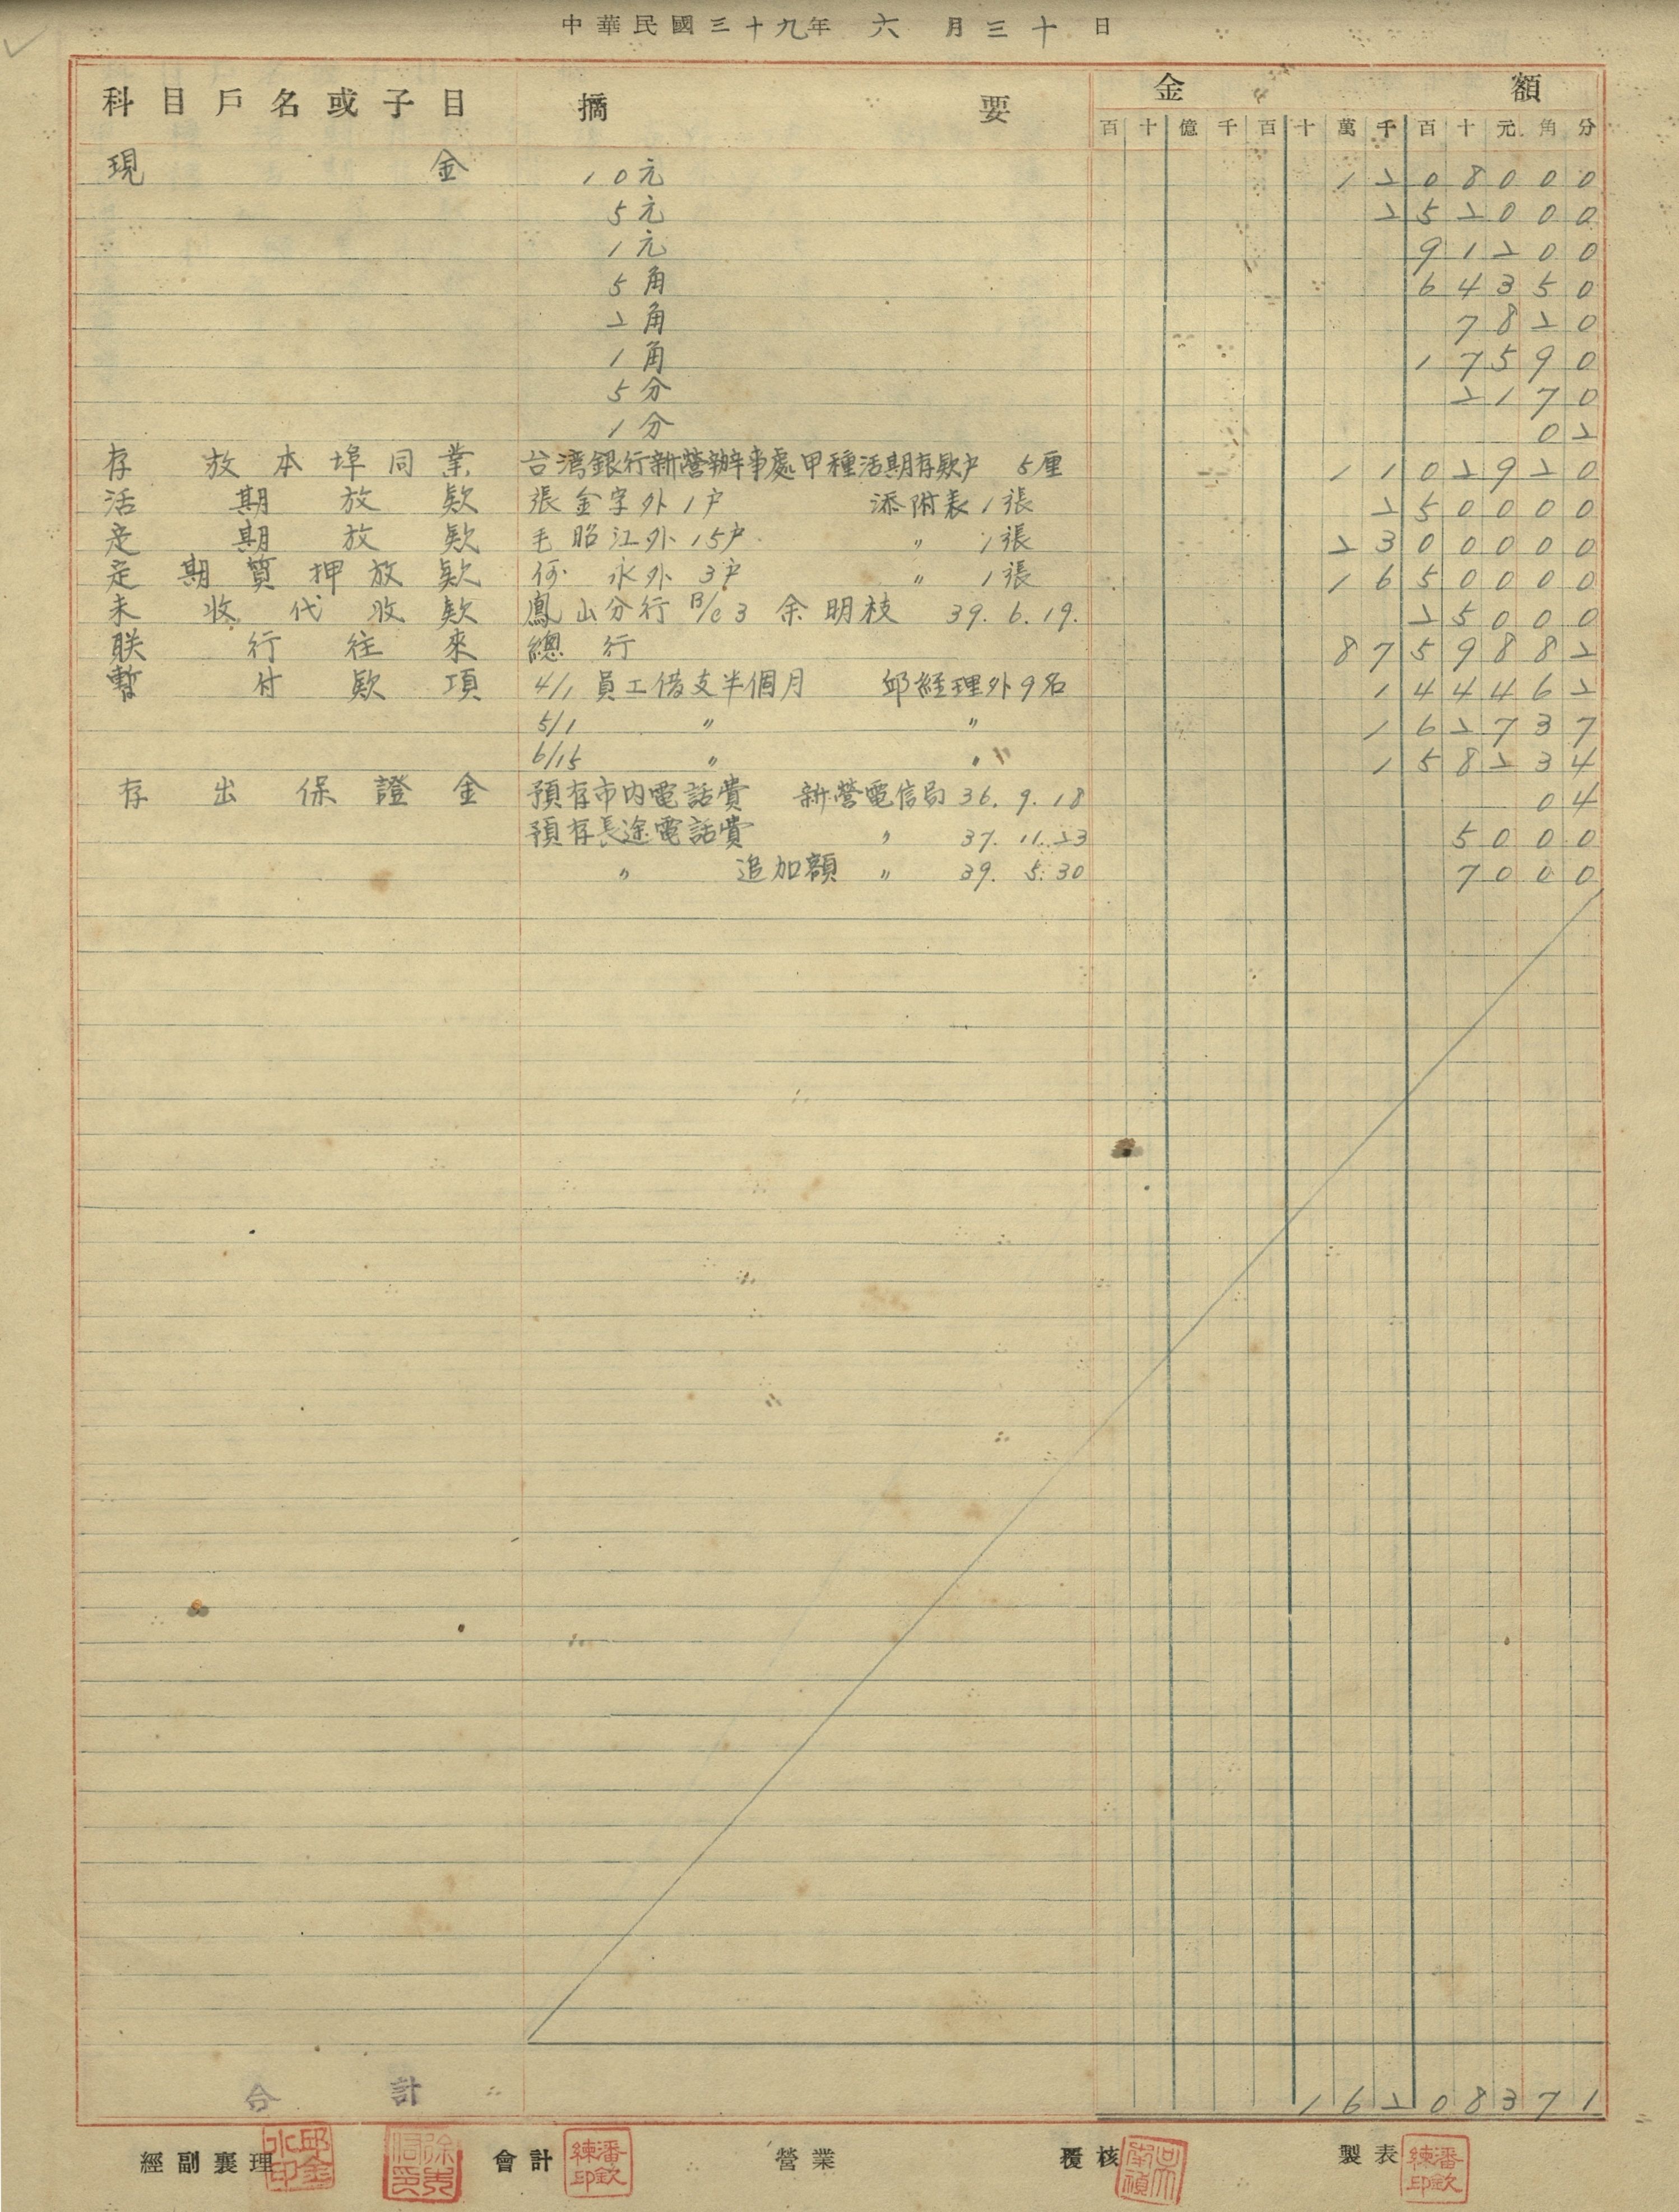 中華民國三十九年 六 月三十 日
科目戶名或子目 摘 要 金 額
百 十 億 千 百 十 萬 千 百 十 元 角 分
現 金 10元 1208000
5元 252000
1元 91200
5角 64350
2角 7820
1角 17590
5分 2170
1分 02
存放本埠同業 台湾銀行新營辦事處甲種活期存款戶 5厘 1102920
活期放款 張金字外1戶 添附表1張 250000
定期放款 毛昭江外15戶 〃 1張 2300000
定期質押放款 何 永外3戶 〃 1張 1650000
未收代收款 鳳山分行 B/C 3 余明枝 39. 6. 19. 25000
联行往來 總行 8759882
暫付款項 4/1 員工借支半個月 邱経理外9名 144462
5/1 〃 〃 162737
6/15 〃 〃 158234
存出保證金 預存市内電話費 新營電信局 36. 9. 18 04
預存長途電話費 〃 37. 11. 23 5000
〃 追加額 〃 39. 5. 30 7000
合 計 16208371
經副襄理 邱金水印 會計 潘欽練印 營業 覆核 製表 潘欽練印